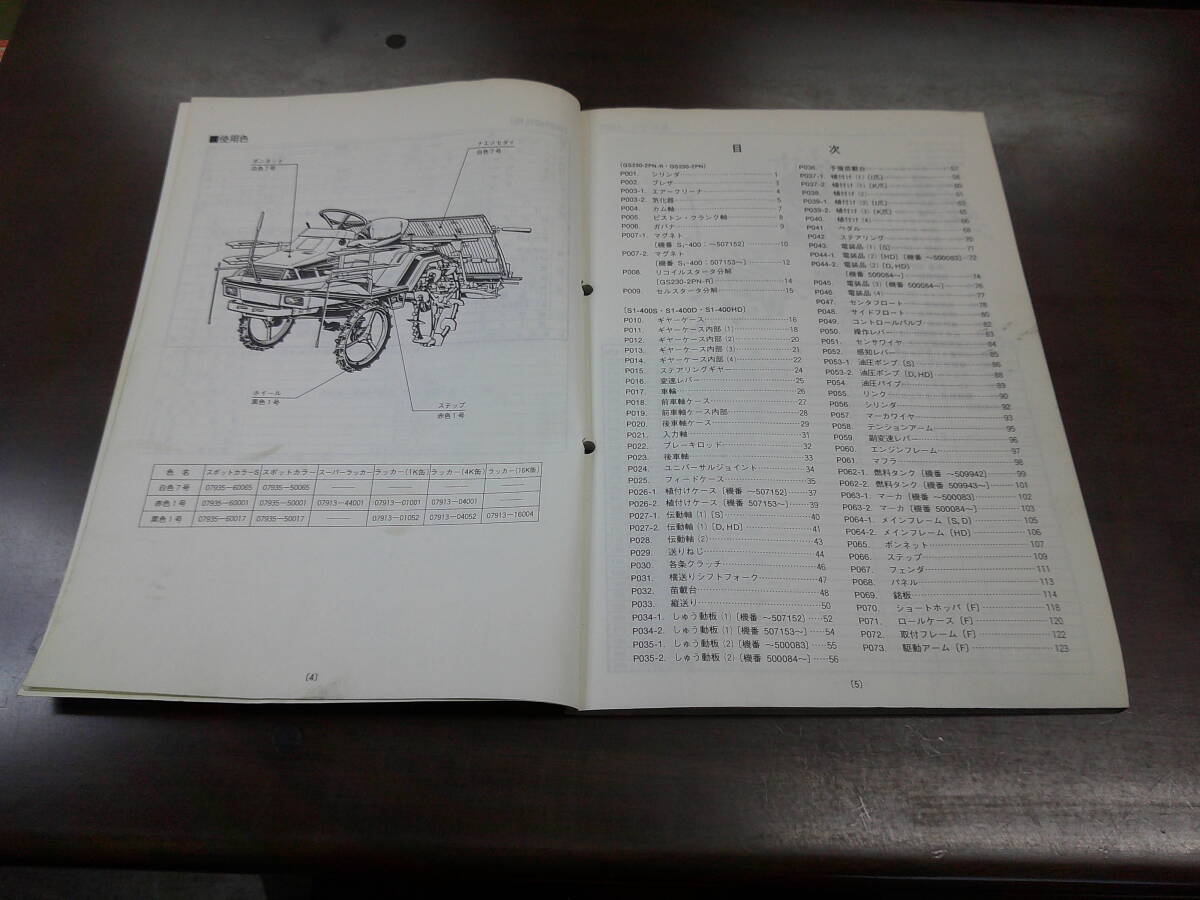 ■使用色
ボンネット
白色7号
ナエノセダイ
白色7号
ホイール
黒色1号
ステップ
赤色1号
色 名 スポットカラーS スポットカラー スーパーラッカー ラッカー(1K缶) ラッカー(4K缶) ラッカー(16K缶)
白色7号 07935-60065 07935-50065 ── ── ── ──
赤色1号 07935-60001 07935-50001 07913-44001 07913-01001 07913-04001 ──
黒色1号 07935-60017 07935-50017 ── 07913-01052 07913-04052 07913-16004
〔4〕
目 次
〔GS230-2PN-R・GS230-2PN〕
P001. シリンダ 1
P002. ブレザ 3
P003-1. エアークリーナ 4
P003-2. 気化器 5
P004. カム軸 7
P005. ピストン・クランク軸 8
P006. ガバナ 9
P007-1. マグネト
〔機番 S₁-400:~507152〕 10
P007-2. マグネト
〔機番 S₁-400:507153~〕 12
P008. リコイルスタータ分解
〔GS230-2PN-R〕 14
P009. セルスタータ分解 15
〔S1-400S・S1-400D・S1-400HD〕
P010. ギヤーケース 16
P011. ギヤーケース内部(1) 18
P012. ギヤーケース内部(2) 20
P013. ギヤーケース内部(3) 21
P014. ギヤーケース内部(4) 22
P015. ステアリングギヤー 24
P016. 変速レバー 25
P017. 車輪 26
P018. 前車軸ケース 27
P019. 前車軸ケース内部 28
P020. 後車軸ケース 29
P021. 入力軸 31
P022. ブレーキロッド 32
P023. 後車軸 33
P024. ユニバーサルジョイント 34
P025. フィードケース 35
P026-1. 植付けケース〔機番 ~507152〕 37
P026-2. 植付けケース〔機番 507153~〕 39
P027-1. 伝動軸(1)〔S〕 40
P027-2. 伝動軸(1)〔D,HD〕 41
P028. 伝動軸(2) 43
P029. 送りねじ 44
P030. 各条クラッチ 46
P031. 横送りシフトフォーク 47
P032. 苗載台 48
P033. 縦送り 50
P034-1. しゅう動板(1)〔機番 ~507152〕 52
P034-2. しゅう動板(1)〔機番 507153~〕 54
P035-1. しゅう動板(2)〔機番 ~500083〕 55
P035-2. しゅう動板(2)〔機番 500084~〕 56
P036. 予備苗載台 57
P037-1. 植付け(1)〔I爪〕 58
P037-2. 植付け(1)〔K爪〕 60
P038. 植付け(2) 61
P039-1. 植付け(3)〔I爪〕 63
P039-2. 植付け(3)〔K爪〕 65
P040. 植付け(4) 66
P041. ペダル 68
P042. ステアリング 70
P043. 電装品(1)〔S〕 71
P044-1. 電装品(2)〔HD〕〔機番 ~500083〕 72
P044-2. 電装品(2)〔D,HD〕
〔機番 500084~〕 74
P045. 電装品(3)〔機番 500084~〕 76
P046. 電装品(4) 77
P047. センタフロート 78
P048. サイドフロート 80
P049. コントロールバルブ 82
P050. 操作レバー 83
P051. センサワイヤ 84
P052. 感知レバー 85
P053-1. 油圧ポンプ〔S〕 86
P053-2. 油圧ポンプ〔D,HD〕 88
P054. 油圧パイプ 89
P055. リンク 90
P056. シリンダ 92
P057. マーカワイヤ 93
P058. テンションアーム 95
P059. 副変速レバー 96
P060. エンジンフレーム 97
P061. マフラ 98
P062-1. 燃料タンク〔機番 ~509942〕 99
P062-2. 燃料タンク〔機番 509943~〕 101
P063-1. マーカ〔機番 ~500083〕 102
P063-2. マーカ〔機番 500084~〕 103
P064-1. メインフレーム〔S,D〕 105
P064-2. メインフレーム〔HD〕 106
P065. ボンネット 107
P066. ステップ 109
P067. フェンダ 111
P068. パネル 113
P069. 銘板 114
P070. ショートホッパ〔F〕 118
P071. ロールケース〔F〕 120
P072. 取付フレーム〔F〕 122
P073. 駆動アーム〔F〕 123
〔5〕